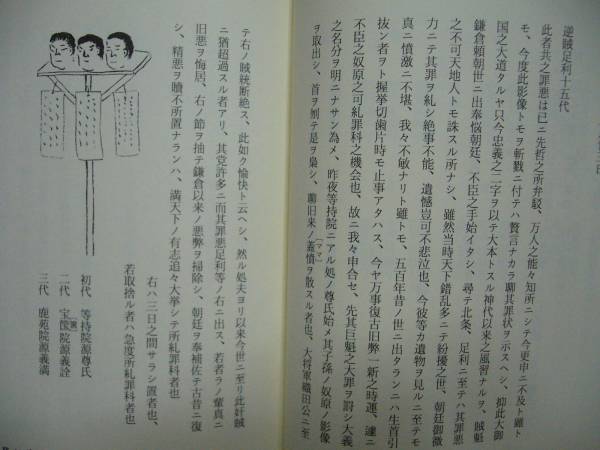 逆賊足利十五代
此者共之罪悪は已ニ先哲之所弁駁、万人之能々知所ニシテ今更申ニ不及ト雖ト
モ、今度此影像トモヲ斬戮ニ付テハ贅言ナカラ聊其罪状ヲ示スヘシ、抑此大御
国之大道タルヤ只今忠義之二字ヲ以テ大本トスル神代以来之風習ナルヲ、賊魁
鎌倉頼朝世ニ出奉悩朝廷、不臣之手始イタシ、尋テ北条、足利ニ至テハ其罪悪
之不可天地人トモ誅スル所ナシ、雖然当時天下錯乱多ニテ紛擾之世、朝廷御微
力ニテ其罪ヲ糺シ絶事不能、遺憾豈可不悲泣也、今彼等カ遺物ヲ見ルニ至テモ
真ニ憤激ニ不堪、我々不敏ナリト雖トモ、五百年昔ノ世ニ出タランニハ生首引
抜ン者ヲト握拳切歯片時モ止事アタハス、今ヤ万事復古旧弊一新之時運、逮ニ
不臣之奴原之可糺罪科之機会也、故ニ我々申合セ、先其巨魁之大罪ヲ罰シ大義
之名分ヲ明ニナサン為メ、昨夜等持院ニアル処ノ尊氏始メ其子孫ノ奴原ノ影像
ヲ取出シ、首ヲ刎テ是ヲ梟シ、聊旧来ノ蓄憤ヲ散スル者也、大将軍織田公ニ至
(ママ)
テ右ノ賊統断絶ス、此如ク愉快ト云ヘシ、然ル処夫ヨリ以来今世ニ至リ此奸賊
ニ猶超過スル者アリ、其党許多ニ而其罪悪足利等ノ右ニ出ス、若者ラノ輩真ニ
旧悪ヲ悔居、右ノ節ヲ抽テ鎌倉以来ノ悪弊ヲ掃除シ、朝廷ヲ奉補佐テ古昔ニ復
シ、精悪ヲ贖不所置ナランハ、満天下ノ有志追々大挙シテ所糺罪科者也
右ハ三日之間サラシ置者也、
若取捨ル者ハ急度所糺罪科者也
初代 等持院源尊氏
二代 宝篋院源義詮
三代 鹿苑院源義満